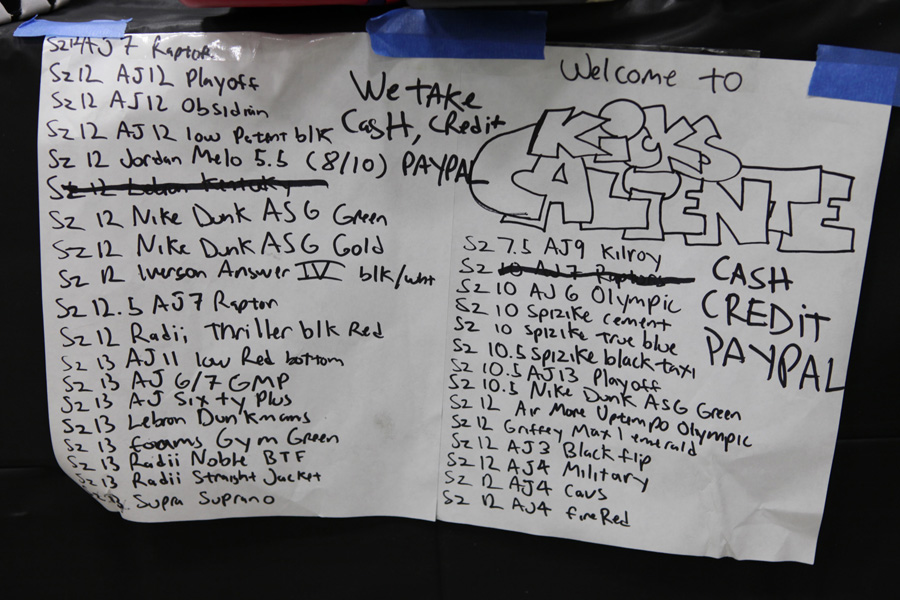 Sz 12 AJ 7 Raptor
Sz 12 AJ12 Playoff
Sz 12 AJ12 Obsidian
Sz 12 AJ 12 low Patent blk
Sz 12 Jordan Melo 5.5 (8/10)
Sz 12 Lebron Kentuky
Sz 12 Nike Dunk ASG Green
Sz 12 Nike Dunk ASG Gold
Sz 12 Iverson Answer IV blk/wht
Sz 12.5 AJ7 Raptor
Sz 12 Radii Thriller blk Red
Sz 13 AJ11 low Red bottom
Sz 13 AJ 6/7 GMP
Sz 13 AJ Sixty Plus
Sz 13 Lebron Dunkmans
Sz 13 foams Gym Green
Sz 13 Radii Noble BTF
Sz 13 Radii Straight Jacket
Supra Suprano
We TAKE
CASH, CRedit
PAYPAL
Welcome to
KicKS
CALIENTE
Sz 7.5 AJ9 Kilroy
Sz 10 AJ7 Raptors
Sz 10 AJ6 Olympic
Sz 10 Spizike cement
Sz 10 Spizike true blue
Sz 10.5 Spizike black taxi
Sz 10.5 AJ13 Playoff
Sz 10.5 Nike Dunk ASG Green
Sz 12 Air More Uptempo Olympic
Sz 12 Griffey Max 1 emerald
Sz 12 AJ3 Black flip
Sz 12 AJ4 Military
Sz 12 AJ4 Cavs
Sz 12 AJ4 fire Red
CASH
CREDiT
PAYPAL